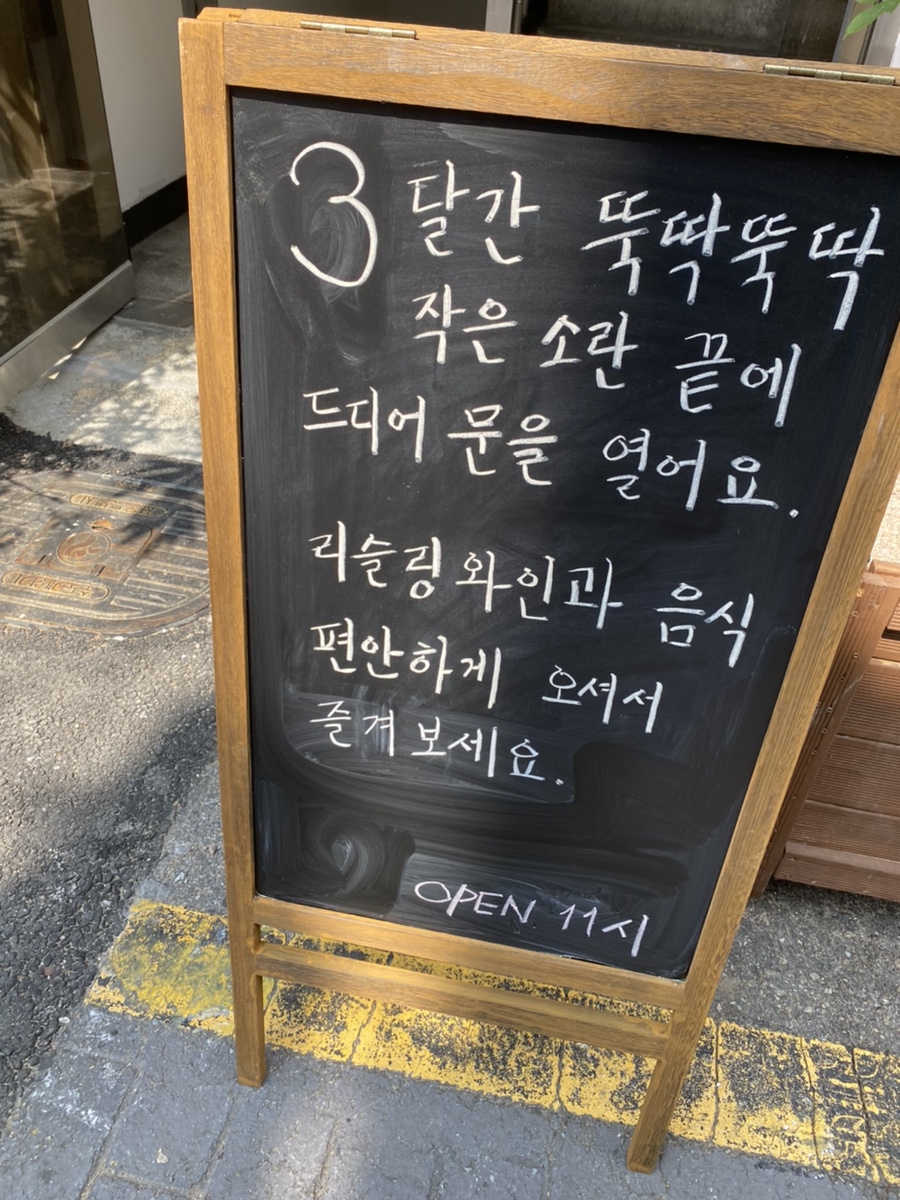 3달간 뚝딱뚝딱
작은 소란 끝에
드디어 문을 열어요.
리슬링 와인과 음식
편안하게 오셔서
즐겨 보세요.
OPEN 11시